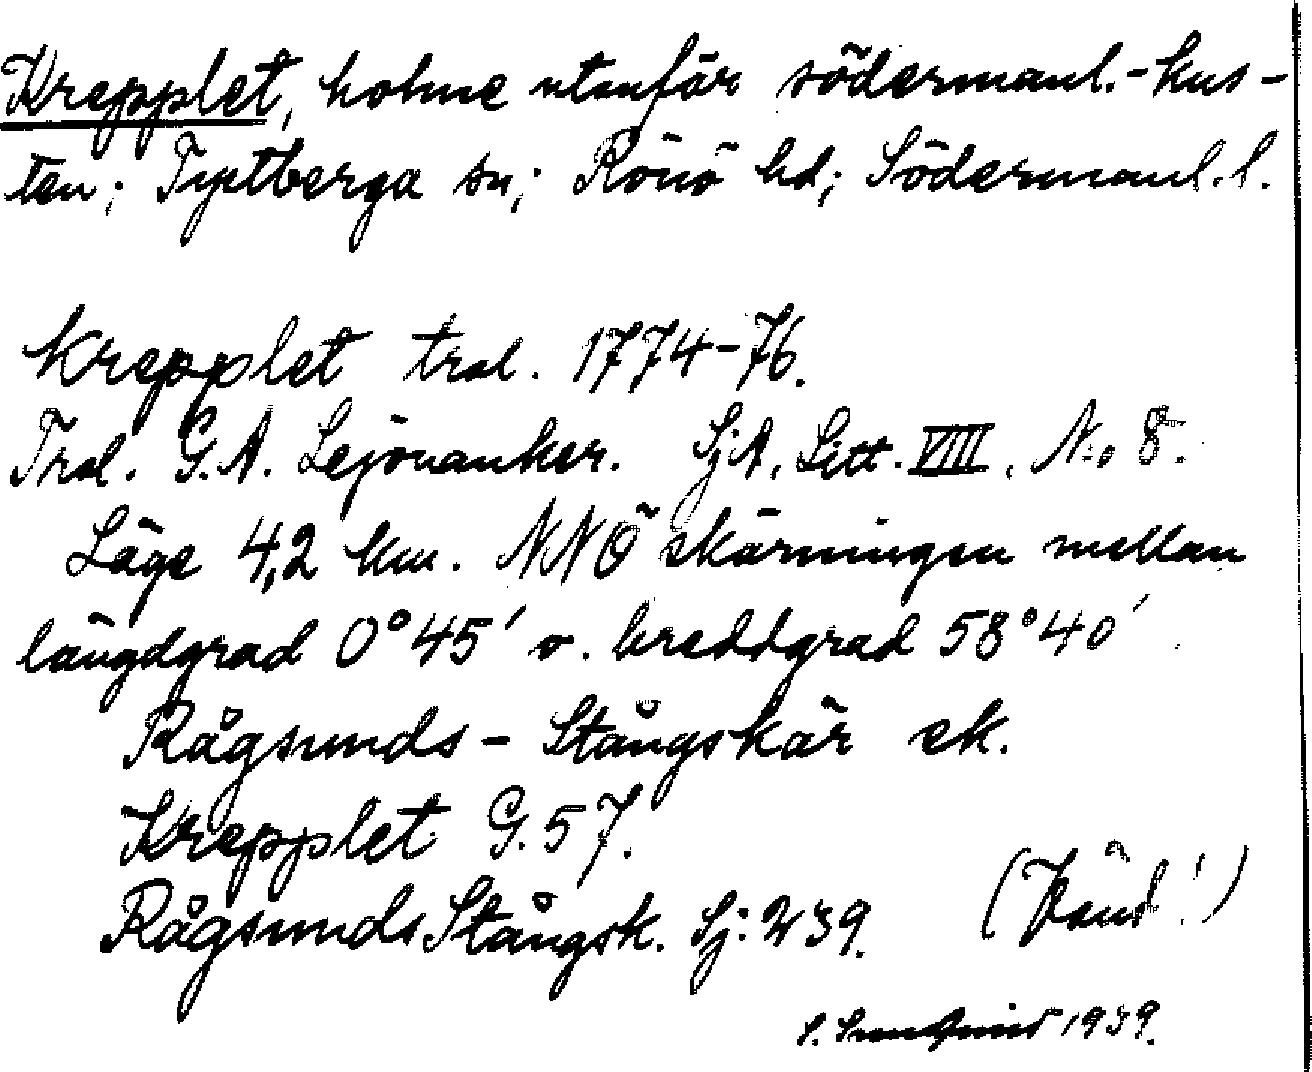 Krepplet, holme utanför södermanl.-kus-
ten; Tystberga sn; Rönö hd; Södermanl. l.
Krepplet trol. 1774-76.
Trol. G.A. Lejonanker. SjA, Litt. VIII, No 8.
Läge 4,2 km. NNÖ skärningen mellan
längdgrad 0°45' o. breddgrad 58°40'
Rågsunds-Stångskär ek.
Krepplet G.57.
Rågsunds Stångsk. Sj:239.
(Vänd!)
1939.